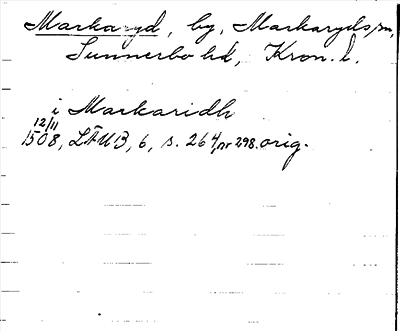 Markaryd, by, Markaryds sn,
Sunnerbo hd, Kron. l.
i Markaridh
12/11
1508, LÄUB, 6, s. 264, nr 298. orig.